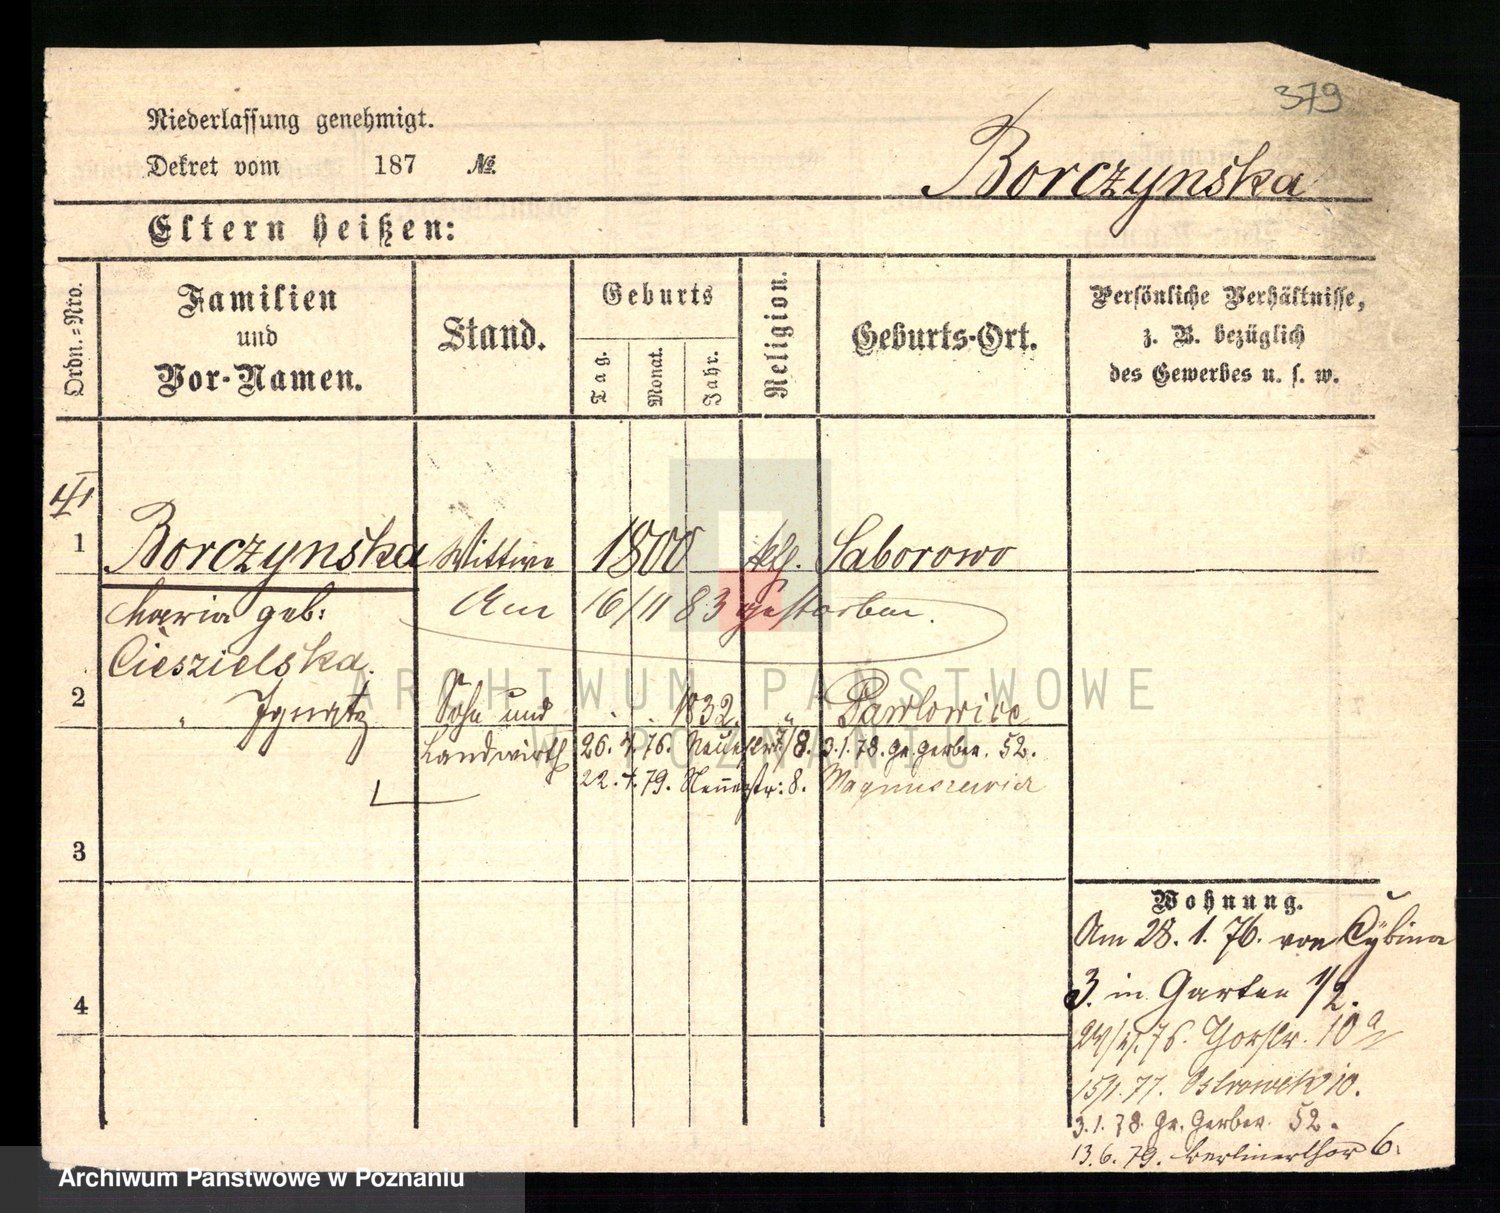 379
Niederlassung genehmigt.
Dekret vom 187 №
Borczynska
Eltern heißen:
Ordn.-Nro.
Familien
und
Vor-Namen.
Stand.
Geburts
Tag.
Monat.
Jahr.
Religion.
Geburts-Ort.
Persönliche Verhältnisse,
z. B. bezüglich
des Gewerbes u. s. w.
1 Borczynska Wittwe 1800 ktl. Saborowo
Maria geb: Am 16/11 83 gestorben.
Cieszielska.
2 " Ignatz Sohn und . . 1832. " Pawlowice
Landwirth 26. 4. 76. 7/8. 3.1.78. Gr. Gerber. 52.
22. 4. 79. 8. Magnuszewicz
3
4
Wohnung.
Am 28. 1. 76. von Cybina
3. in Garten 1/2.
24/4.76. Thorstr. 10a
15/1.77. Ostrowek 10.
3.1.78. Gr. Gerber. 52.
13.6.79. Berlinerthor 6.
ARCHIWUM PAŃSTWOWE
W POZNANIU
Archiwum Panstwowe w Poznaniu